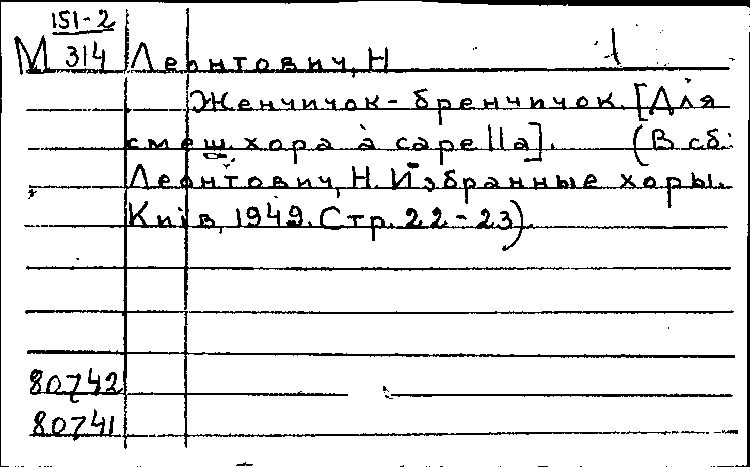 151-2
М 314 Леонтович, Н 1
Женчичок-бренчичок. [Для
смеш. хора a capella]. (В сб:
Леонтович, Н. Избранные хоры.
Киів, 1949. Стр. 22-23).
80742
80741